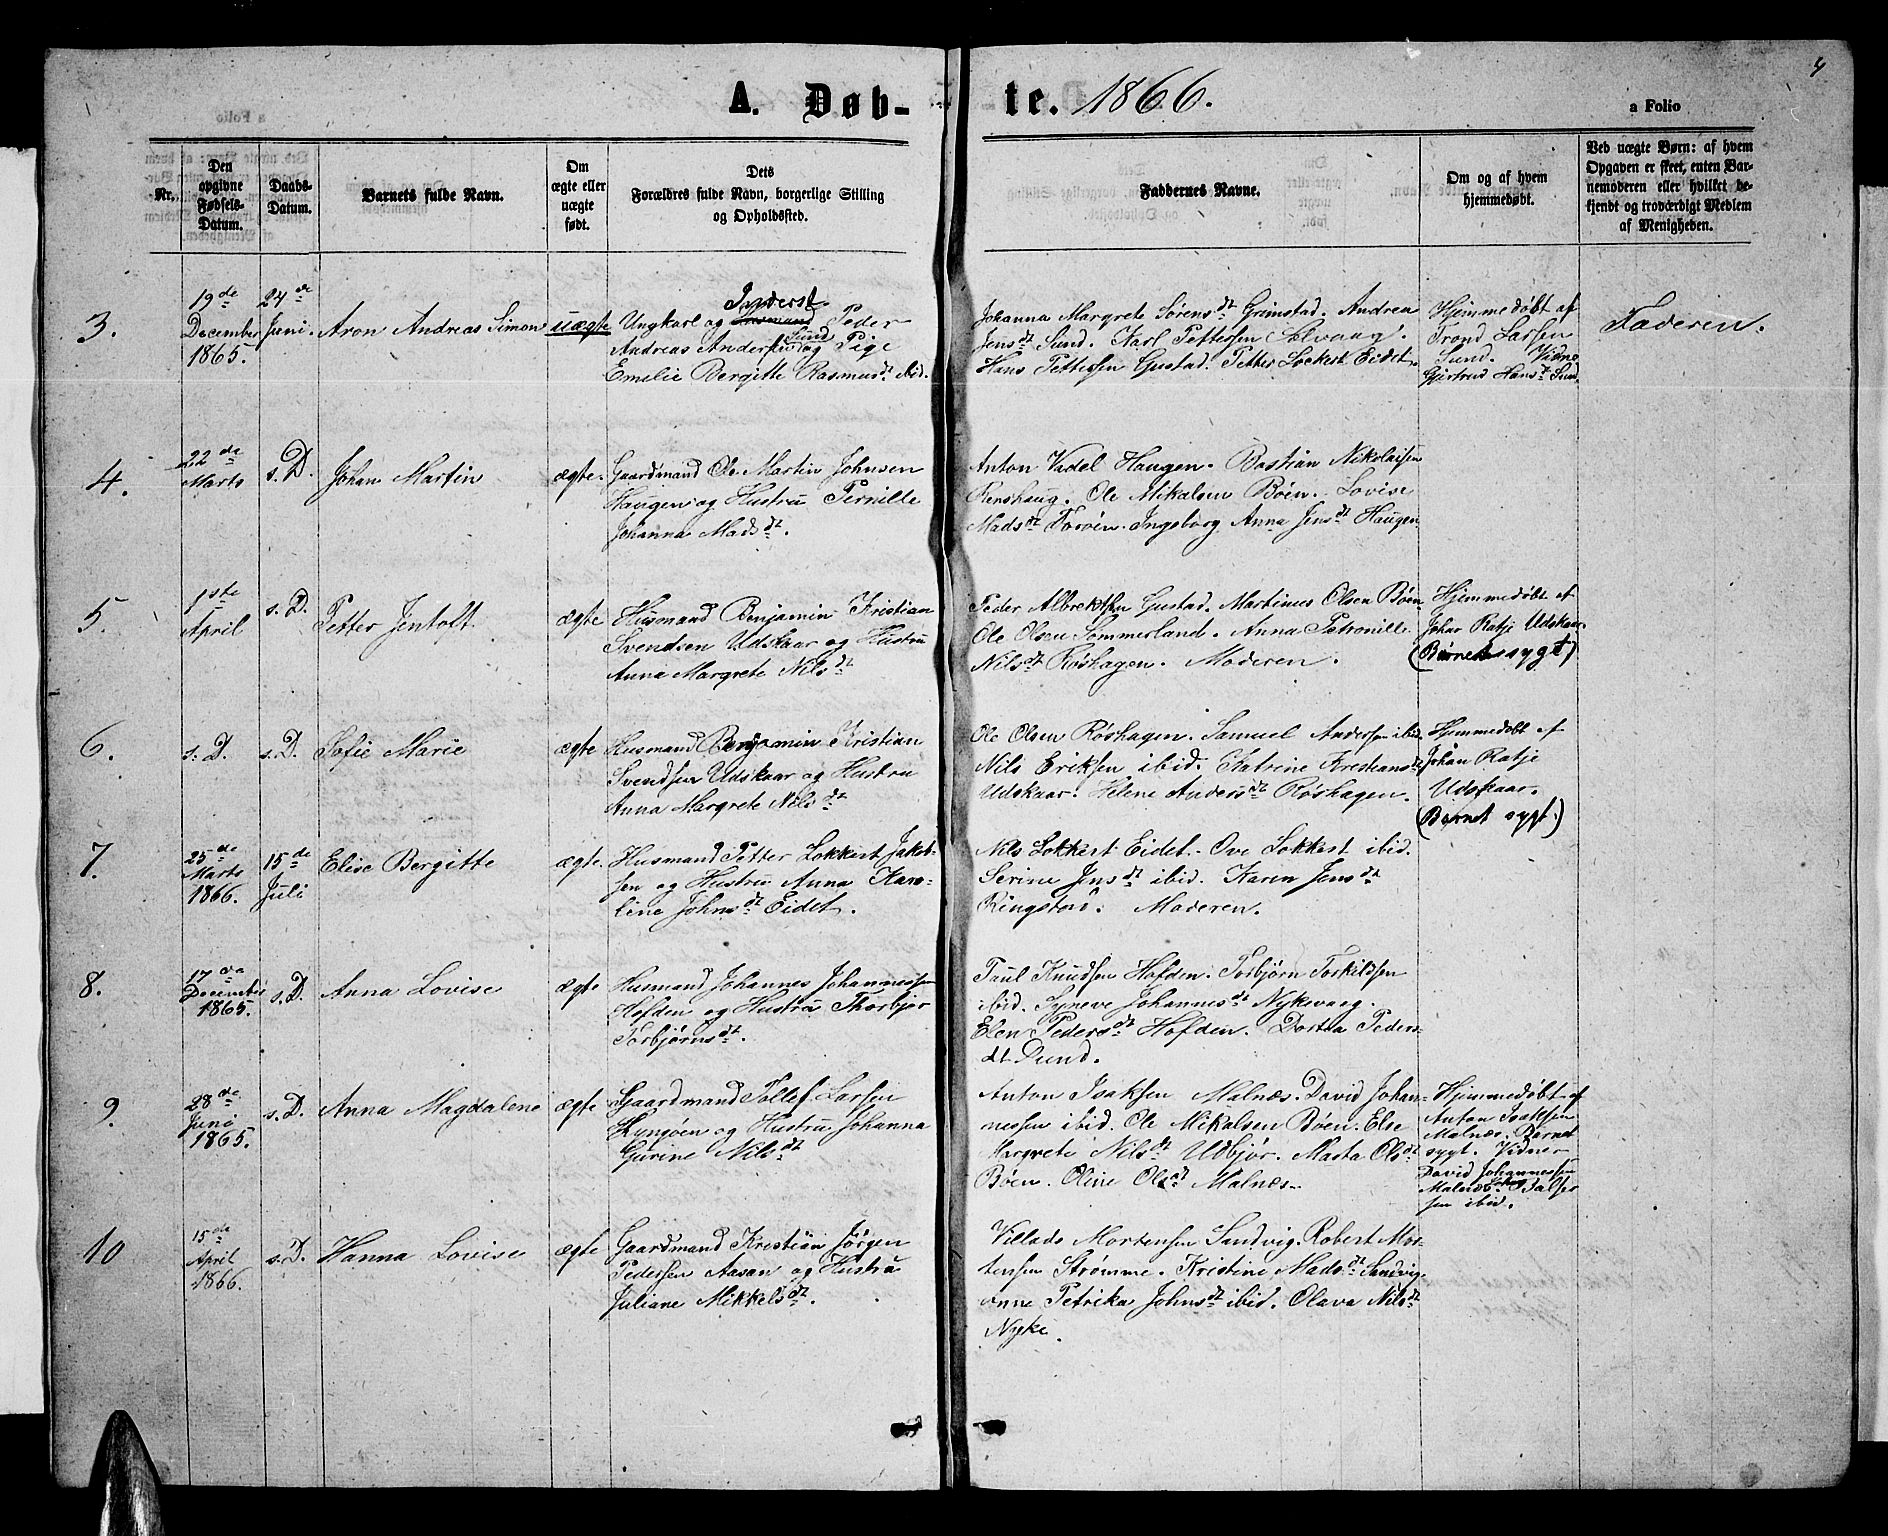 4
A. Døb- te. 1866.
a Folio
Nr.
Den opgivne Fødsels-Datum.
Daabs-Datum.
Barnets fulde Navn.
Om ægte eller uægte født.
Dets Forældres fulde Navn, borgerlige Stilling og Opholdssted.
Faddernes Navne.
Om og af hvem hjemmedøbt.
Ved uægte Børn: af hvem Opgaven er skeet, enten Barnemoderen eller hvilket bekjendt og troværdigt Medlem af Menigheden.
3.
19de
December
1865.
24de
Juni.
Aron Andreas Simon
uægte
Inderst
Ungkarl og Peder
Andreas Andersen Sund og Pige
Emelie Bergitte Rasmusdt ibid.
Johanna Margrete Sørensdt Grimstad. Andrea
Jensdt Sund. Karl Pettersen Solvaag.
Hans Pettersen Gustad. Petter Lockert Eidet
Hjemmedøbt af
Trond Larsen
Sund. Vidne
Gjertrud Hansdt Sund.
Faderen.
4.
22de
Marts
s. D.
Johan Martin
ægte.
Gaardmand Ole Martin Johnsen
Haugen og Hustru Pernille
Johanna Madsdt.
Anton Vadel Haugen. Bastian Nikolaisen
Renshaug. Ole Mikalsen Bøen. Lovise
Madsdt Torøen. Ingeborg Anna Jensdt Haugen
5.
1ste
April
s. D.
Petter Jentoft.
ægte
Husmand Benjamin Kristian
Svendsen Udskaar og Hustru
Anna Margrete Nilsdt
Peder Albrektsen Gustad. Martinus Olsen Bøen
Ole Olsen Sommerland. Anna Petronille
Nilsdt Røshagen. Moderen.
Hjemmedøbt af
Johan Ratje Udskaar
(Barnet sygt)
6.
s. D.
s. D.
Sofie Marie
ægte
Husmand Benjamin Kristian
Svendsen Udskaar og Hustru
Anna Margrete Nilsdt
Ole Olsen Røshagen. Samuel Andersen ibid.
Nils Eriksen ibid. Katrine Kristiansdt
Udskaar. Helene Andersdt Røshagen.
Hjemmedøbt af
Johan Ratje
Udskaar.
(Barnet sygt.)
7.
25de
Marts
1866.
15de
Juli
Elise Bergitte
ægte.
Husmand Petter Lokkert Jakob-
sen og Hustru Anna Karo-
line Johnsdt Eidet.
Nils Lokkert Eidet. Ove Lokkert ibid.
Serine Jensdt ibid. Karen Jensdt
Ringstad. Moderen.
8.
17de
December
1865.
s. D.
Anna Lovise
ægte
Husmand Johannes Johannessen
Hofden og Hustru Thorbjør
Torbjørnsdt.
Paul Knudsen Hofden. Torbjørn Torkildsen
ibid. Synneve Johannesdt Nykvaag.
Elen Pedersdt Hofden. Dortea Peders
dt Sund.
9.
28de
Juni
1865.
s. D.
Anna Magdalene
ægte
Gaardmand Tollef Larsen
Lyngøen og Hustru Johanna
Gurine Nilsdt
Anton Isaksen Malnæs. David Johan-
nessen ibid. Ole Mikalsen Bøen. Else
Margrete Nilsdt Udbjør. Marta Olsdt
Bøen. Oline Olsdt Malnæs.
Hjemmedøbt af
Anton Isaksen
Malnæs. Barnet
sygt. Vidner
David Johannessen
Malnæs.
sen ibid.
10
15de
April
1866.
s. D.
Hanna Lovise
ægte
Gaardmand Kristian Jørgen
Pedersen Aasan og Hustru
Juliane Mikkelsdt.
Villads Mortensen Sandvig. Robert Mor-
tensen Strømme. Kristine Madsdt Sandvig.
Anne Petrika Johnsdt ibid. Olava Nilsdt
Nyke.